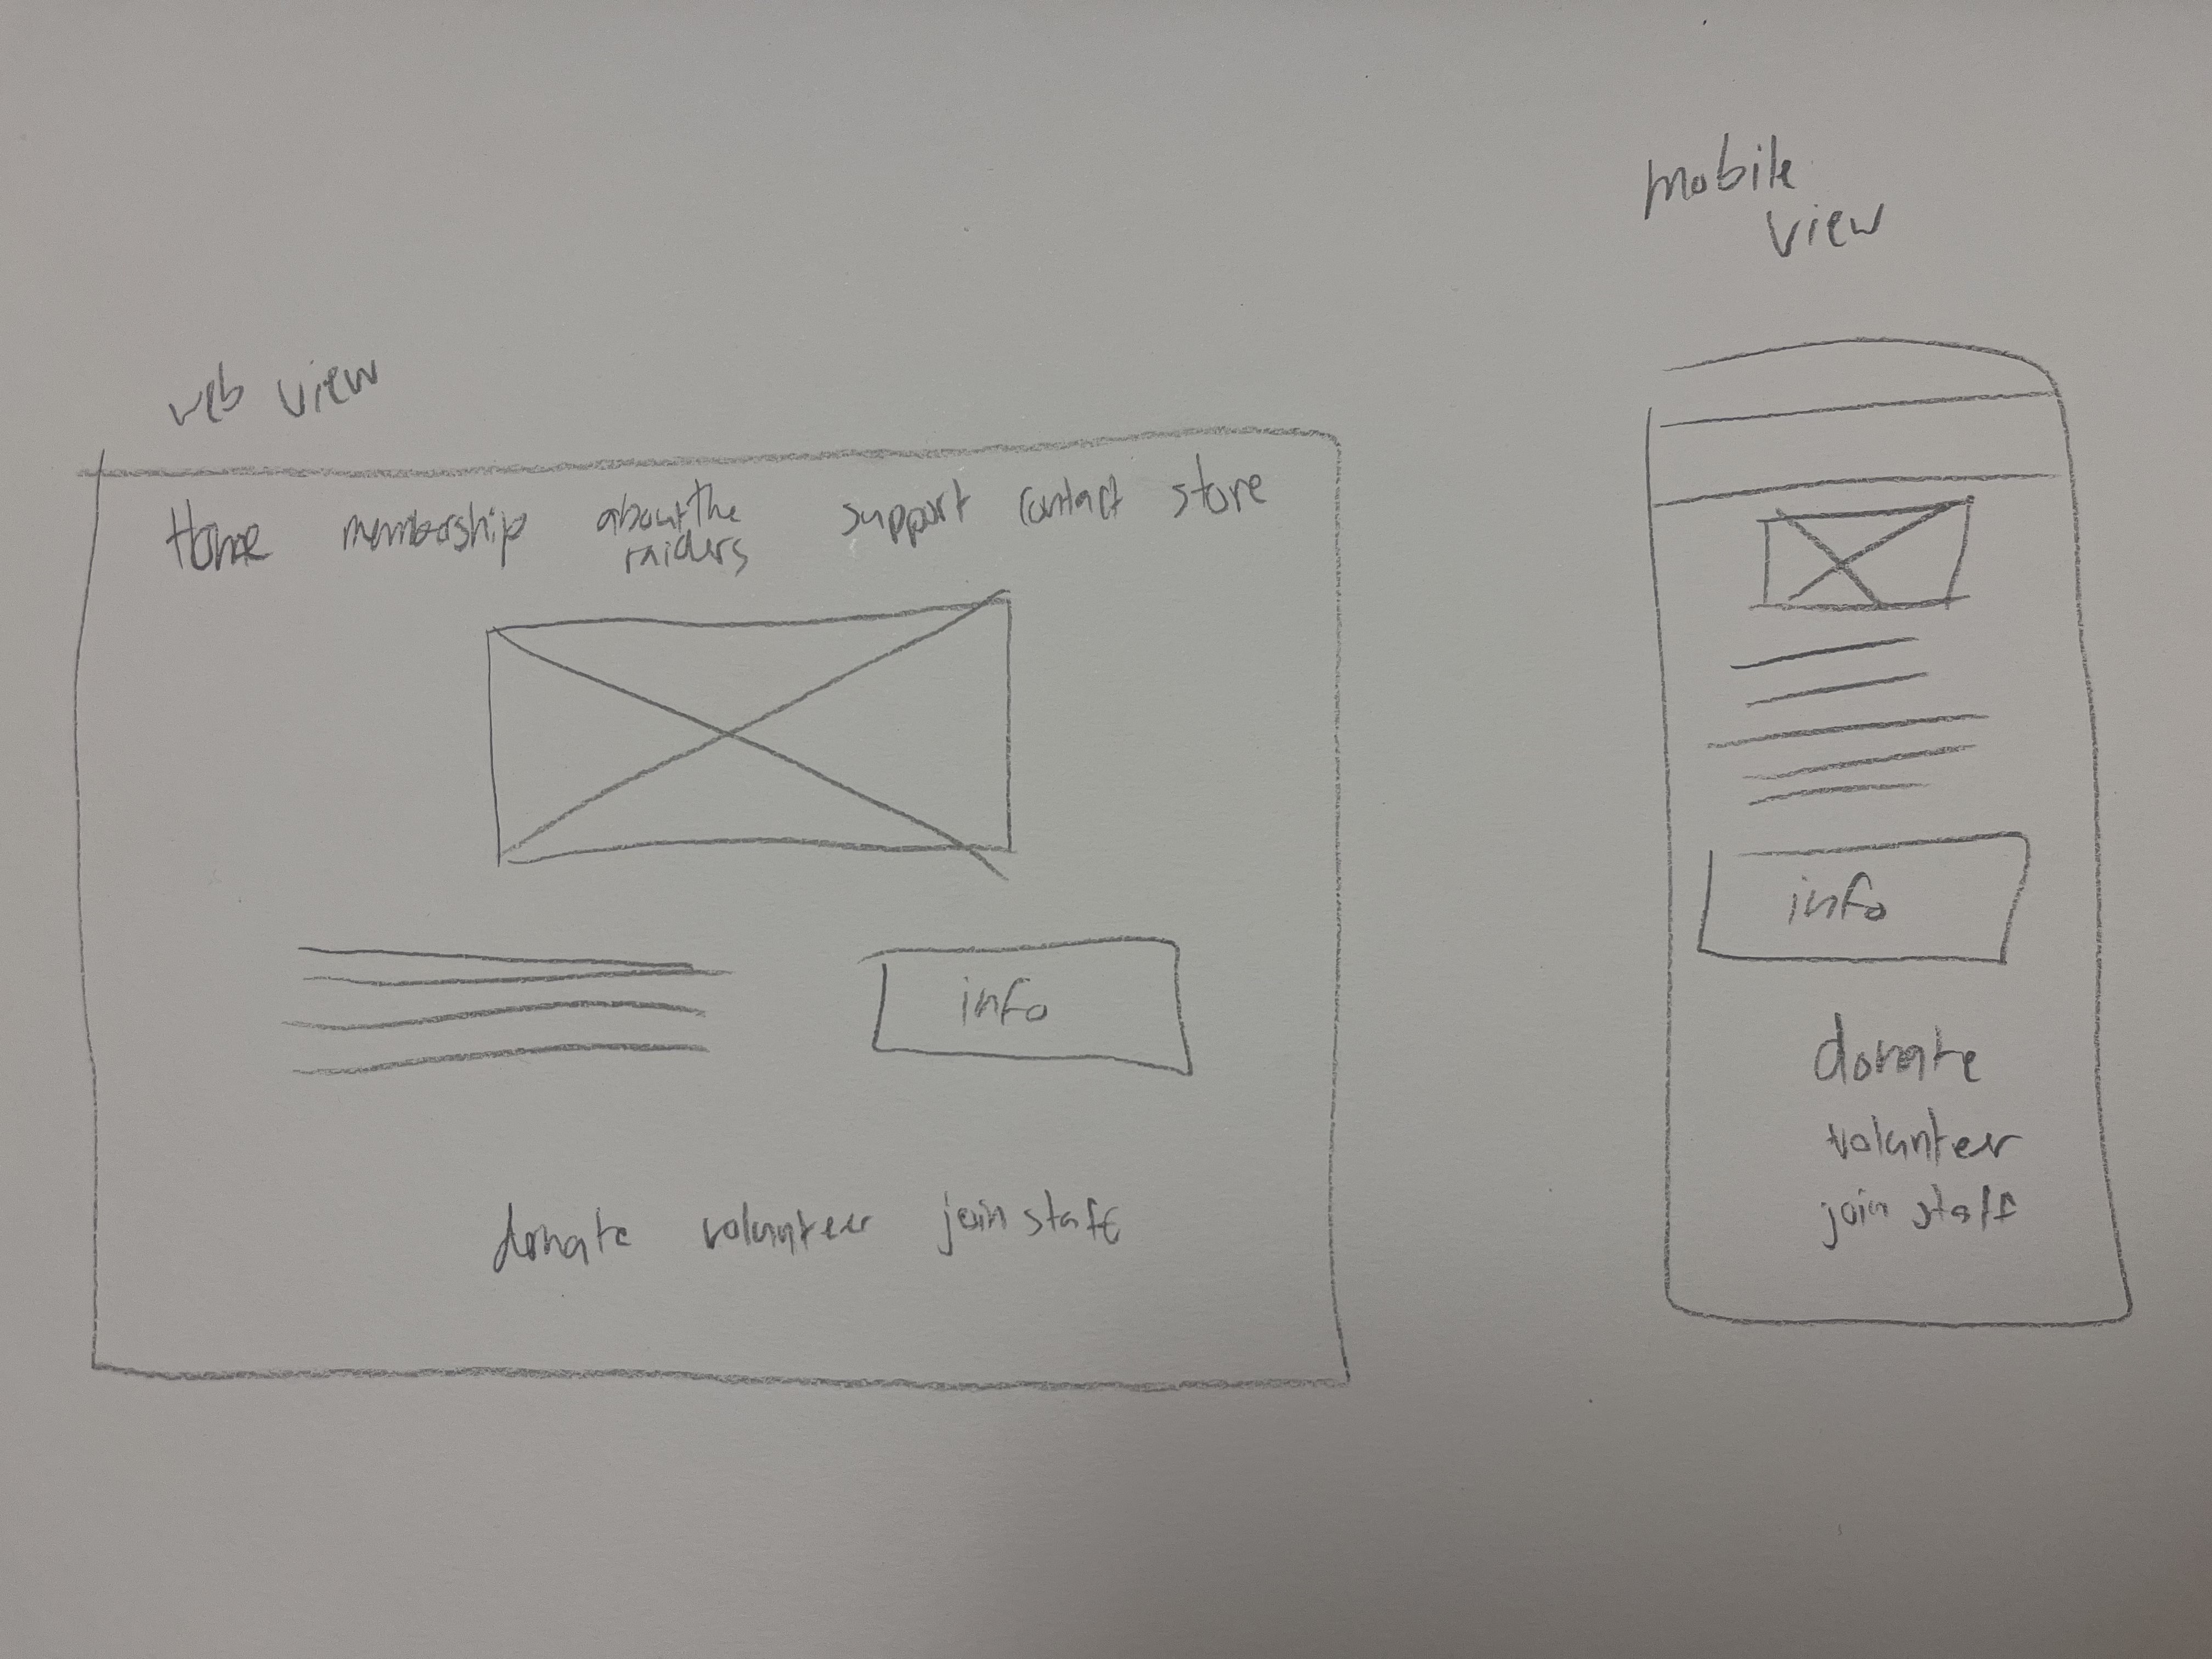 web view
Home membership about the raiders support contact store
info
donate volunteer join staff
mobile
view
info
donate
volunteer
join staff